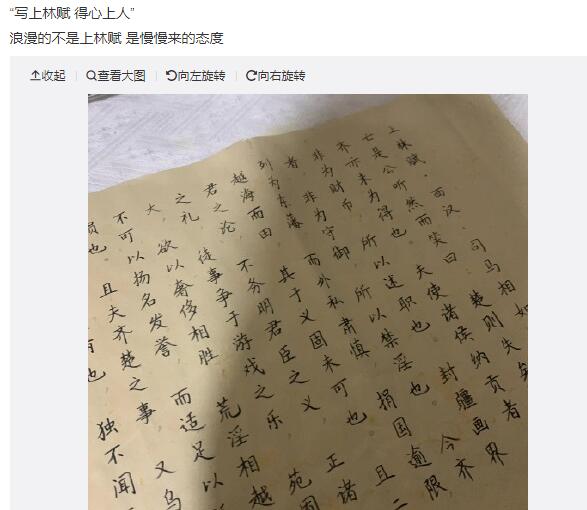 “写上林赋 得心上人”
浪漫的不是上林赋 是慢慢来的态度
收起 查看大图 向左旋转 向右旋转
上林赋·西汉 司马相如
亡是公听然而笑曰 楚则失矣
齐亦未为得也 夫使诸侯纳贡者
非为财币 所以述职也 封疆画界
者 非为守御 所以禁淫也 今齐
列为东藩 而外私肃慎 捐国逾限
越海而田 其于义固未可也 且二
君之论 不务明君臣之义 正诸
之礼 徒事争于游戏之乐 苑囿
大 欲以奢侈相胜 荒淫相越
不可以扬名发誉 而适足以
损也 且夫齐楚之事 又乌
也 独不闻